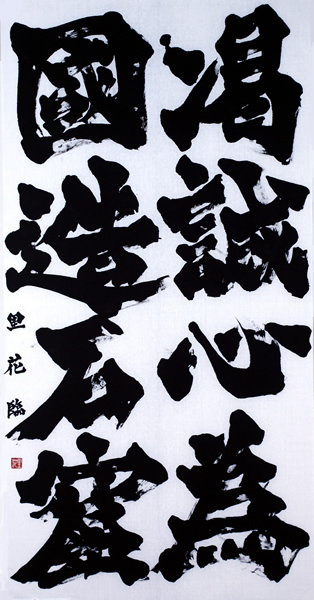 渴誠心為
國造石窟
里花臨